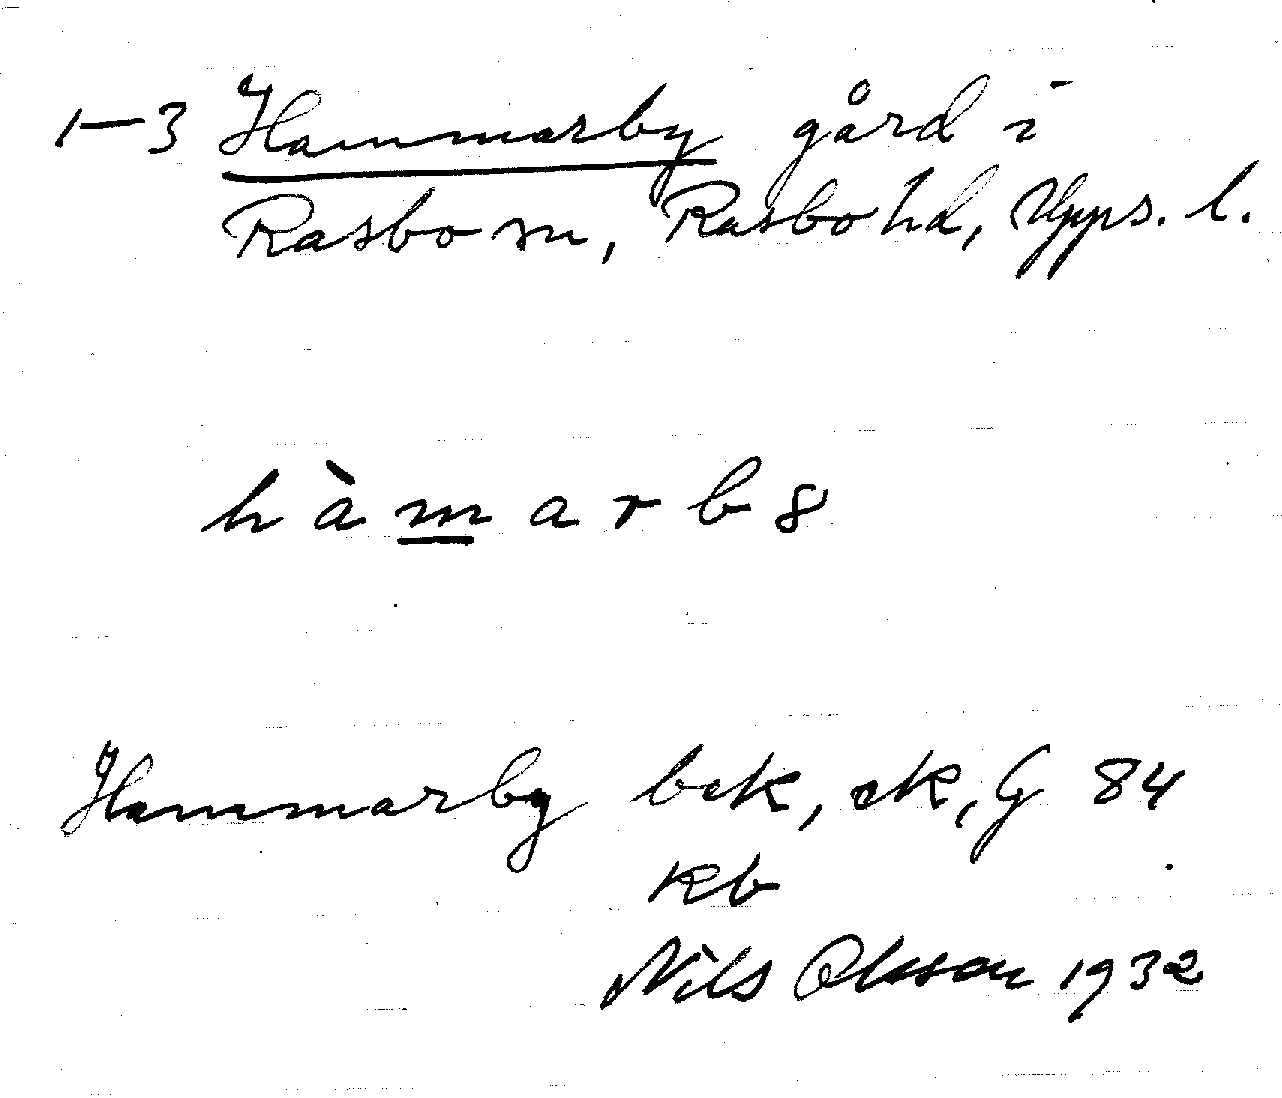 1–3 Hammarby gård i
Rasbo sn, Rasbo hd, Upps. l.
hàmarb8
Hammarby bek, ek, G 84
kb
Nils Olsson 1932